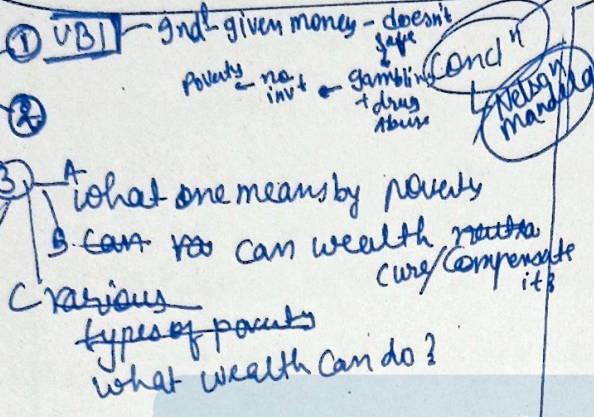 ① UBI - Indl given money - doesn't
save
gambling
+ drug
Abuse
no
invt
Poverty
Concln
Nelson
Mandela
②
3 A what one means by poverty
B. can can wealth
cure/compensate
it?
C various
types of poverty
what wealth can do?